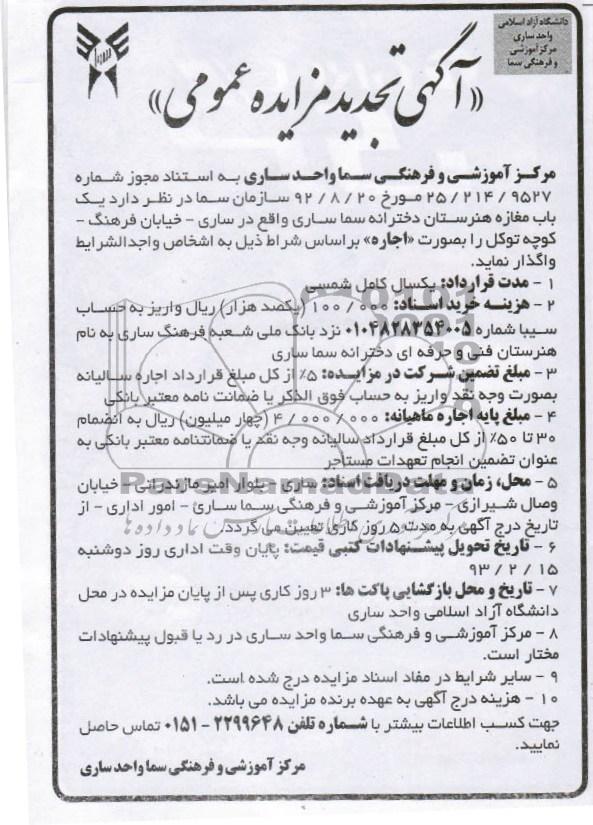 دانشگاه آزاد اسلامی
واحد ساری
مرکز آموزشی
و فرهنگی سما
«آگهی تجدید مزایده عمومی»
مرکز آموزشی و فرهنگی سما واحد ساری به استناد مجوز شماره
۹۵۲۷ / ۲۱۴ / ۲۵ مورخ ۲۰ / ۸ / ۹۲ سازمان سما در نظر دارد یک
باب مغازه هنرستان دخترانه سما ساری واقع در ساری - خیابان فرهنگ -
کوچه توکل را بصورت «اجاره» براساس شراط ذیل به اشخاص واجدالشرایط
واگذار نماید.
۱ - مدت قرارداد: یکسال کامل شمسی
۲ - هزینه خرید اسناد: ۰۰۰ / ۱۰۰ (یکصد هزار) ریال واریز به حساب
سیبا شماره ۰۱۰۴۸۲۸۳۵۴۰۰۵ نزد بانک ملی شعبه فرهنگ ساری به نام
هنرستان فنی و حرفه ای دخترانه سما ساری
۳ - مبلغ تضمین شرکت در مزایده: ۵٪ از کل مبلغ قرارداد اجاره سالیانه
بصورت وجه نقد واریز به حساب فوق الذکر یا ضمانت نامه معتبر بانکی
۴ - مبلغ پایه اجاره ماهیانه: ۰۰۰ / ۰۰۰ / ۴ (چهار میلیون) ریال به انضمام
۳۰ تا ۵۰٪ از کل مبلغ قرارداد سالیانه وجه نقد یا ضمانتنامه معتبر بانکی به
عنوان تضمین انجام تعهدات مستاجر
۵ - محل، زمان و مهلت دریافت اسناد: ساری - بلوار امیر مازندرانی - خیابان
وصال شیرازی - مرکز آموزشی و فرهنگی سما ساری - امور اداری - از
تاریخ درج آگهی به مدت ۵ روز کاری تعیین می گردد.
۶ - تاریخ تحویل پیشنهادات کتبی قیمت: پایان وقت اداری روز دوشنبه
۱۵ / ۲ / ۹۳
۷ - تاریخ و محل بازگشایی پاکت ها: ۳ روز کاری پس از پایان مزایده در محل
دانشگاه آزاد اسلامی واحد ساری
۸ - مرکز آموزشی و فرهنگی سما واحد ساری در رد یا قبول پیشنهادات
مختار است.
۹ - سایر شرایط در مفاد اسناد مزایده درج شده است.
۱۰ - هزینه درج آگهی به عهده برنده مزایده می باشد.
جهت کسب اطلاعات بیشتر با شماره تلفن ۲۲۹۹۶۴۸ - ۰۱۵۱ تماس حاصل
نمایید.
مرکز آموزشی و فرهنگی سما واحد ساری
ParsNamadData